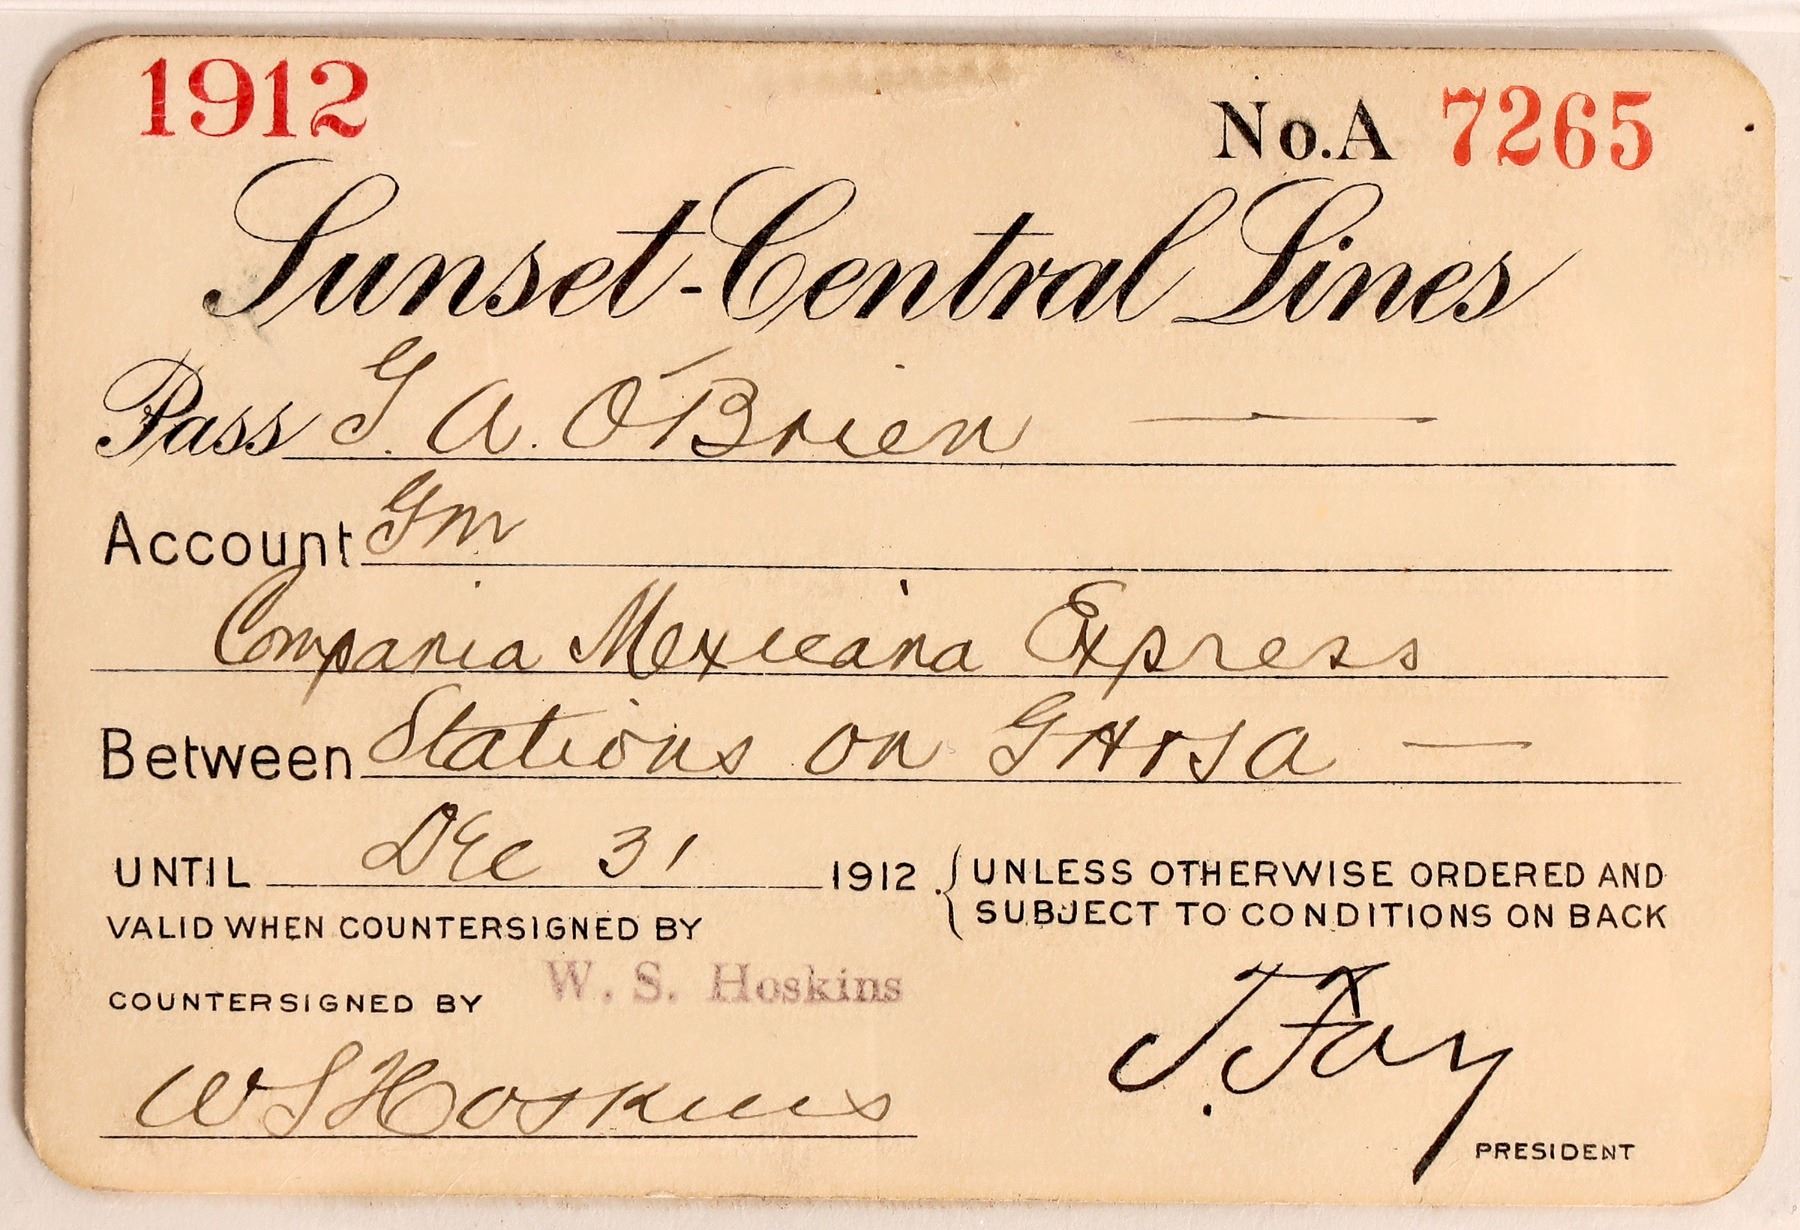 1912
No. A 7265
Sunset-Central Lines
Pass G. A. O'Brien
Account Gm
Compania Mexicana Express
Between Stations on GH&SA
UNTIL Dec 31 1912. { UNLESS OTHERWISE ORDERED AND
SUBJECT TO CONDITIONS ON BACK
VALID WHEN COUNTERSIGNED BY
COUNTERSIGNED BY W. S. Hoskins
W S Hoskins
J. Fay
PRESIDENT